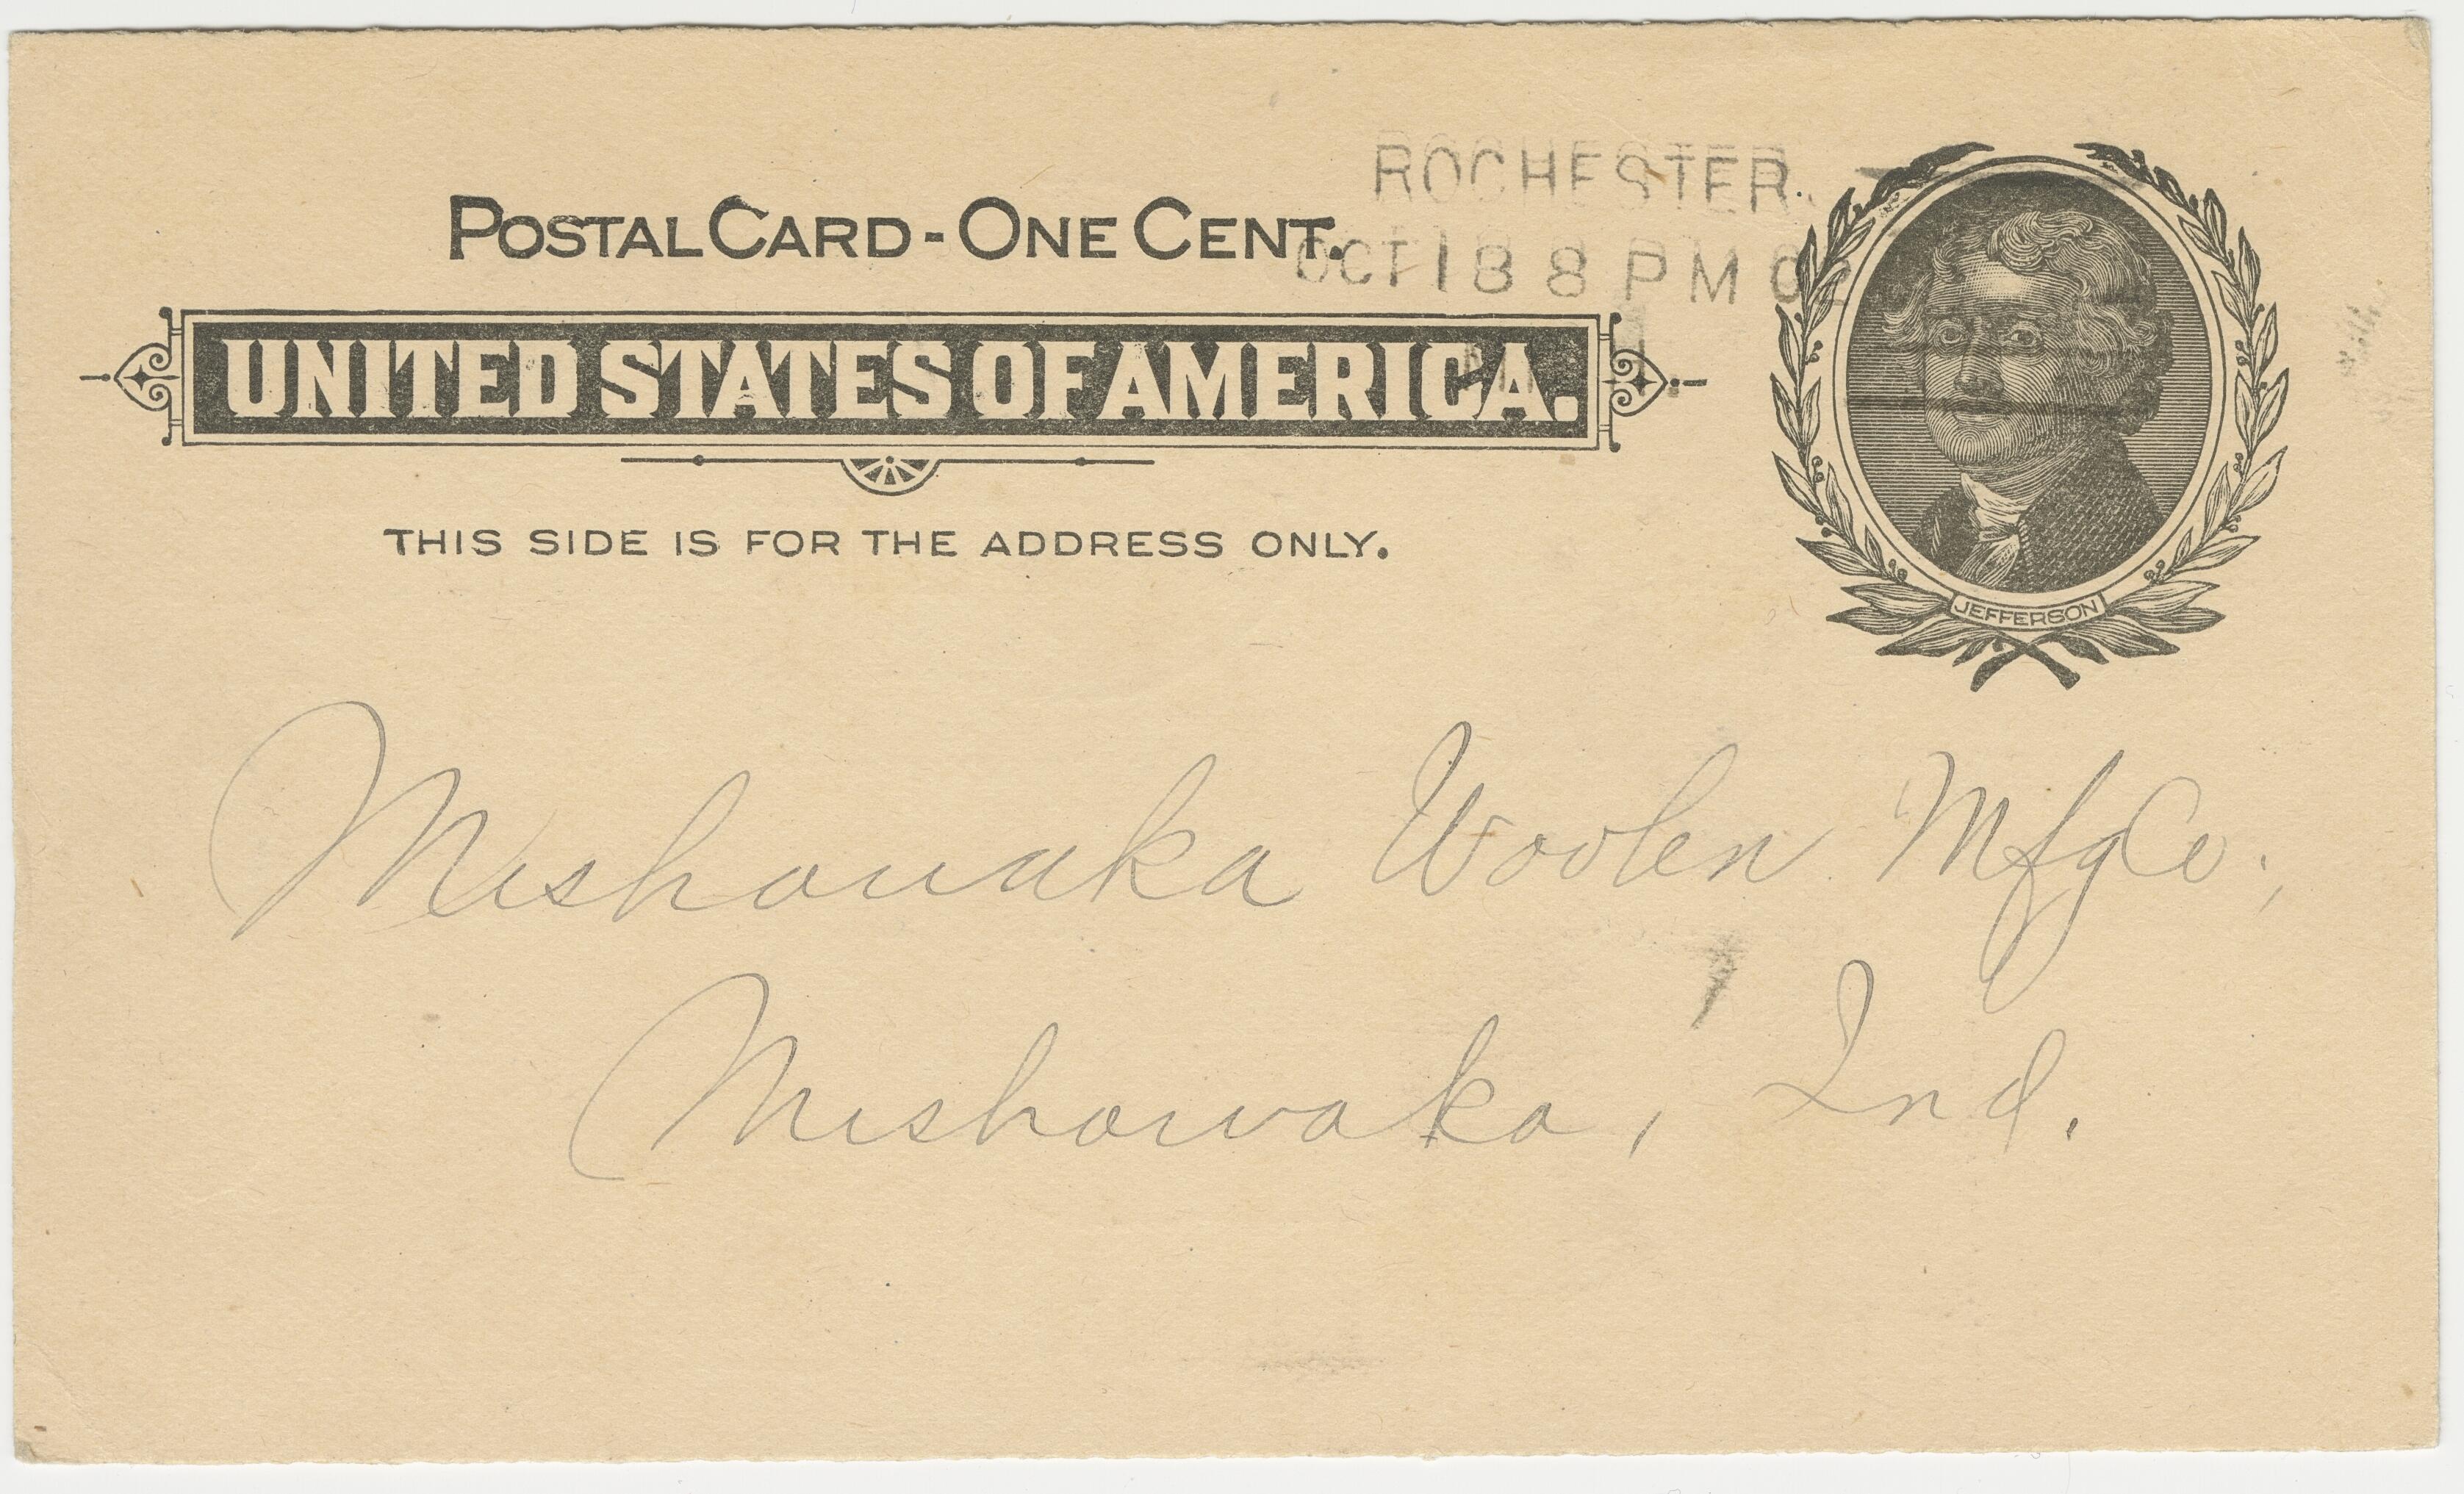 POSTAL CARD - ONE CENT.
ROCHESTER.
OCT 18 8 PM 02
UNITED STATES OF AMERICA.
THIS SIDE IS FOR THE ADDRESS ONLY.
JEFFERSON
Mishawaka Woolen Mfg Co.,
Mishawaka, Ind.